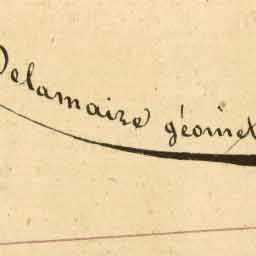 Delamaire géomèt